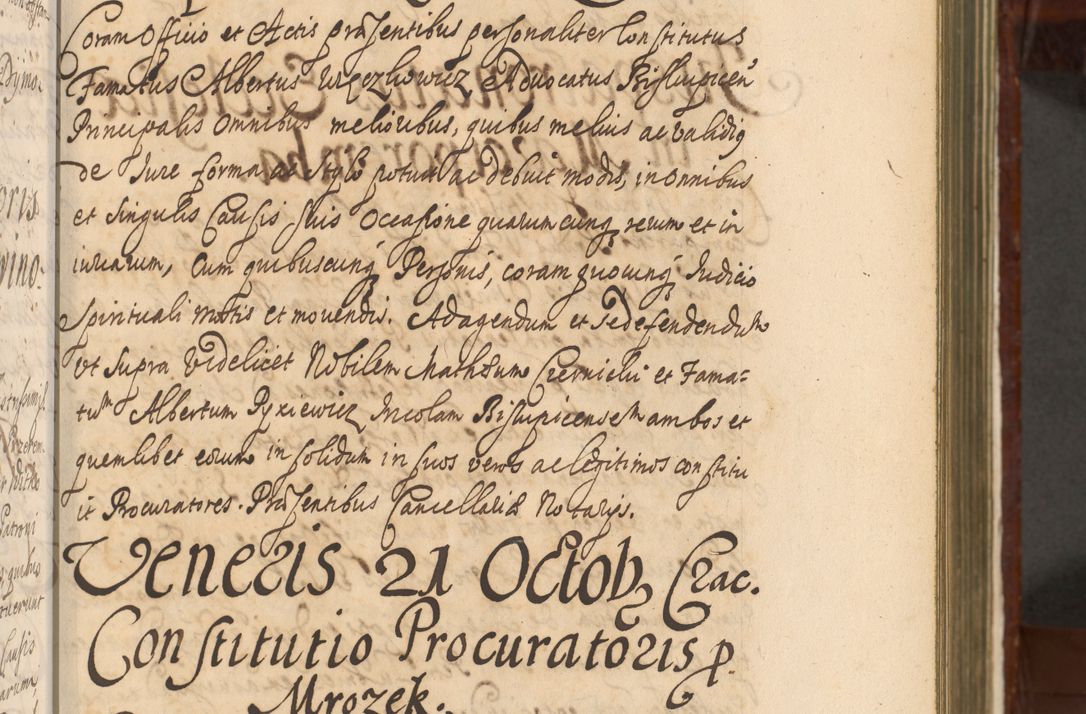 Coram Officio et Actis præsentibus personaliter Constitutus
Famatus Albertus Węzliowicz Advocatus Bisłupicen
Principalis omnibus melioribus, quibus melius ac validiq
de Jure forma ac Stylo potuit ac debuit modis, in omnibus
et singulis Causis suis occasione quarumcunq rerum et in
iuriarum, cum quibuscunq Personis, coram quocunq Judicio
Spirituali motis et movendis. Ad agendum et se defendendum
ut supra videlicet Nobilem Mathæum Czernicki et Fama=
tum Albertum Pyxiewicz Incolam Bisłupicensem ambos et
quemlibet eorum in solidum in suos veros ac legitimos constitu
it Procuratores. Præsentibus Cancellariæ Notarijs.
Veneris 21 Octob, Crac.
Constitutio Procuratoris p.
Mrozek.